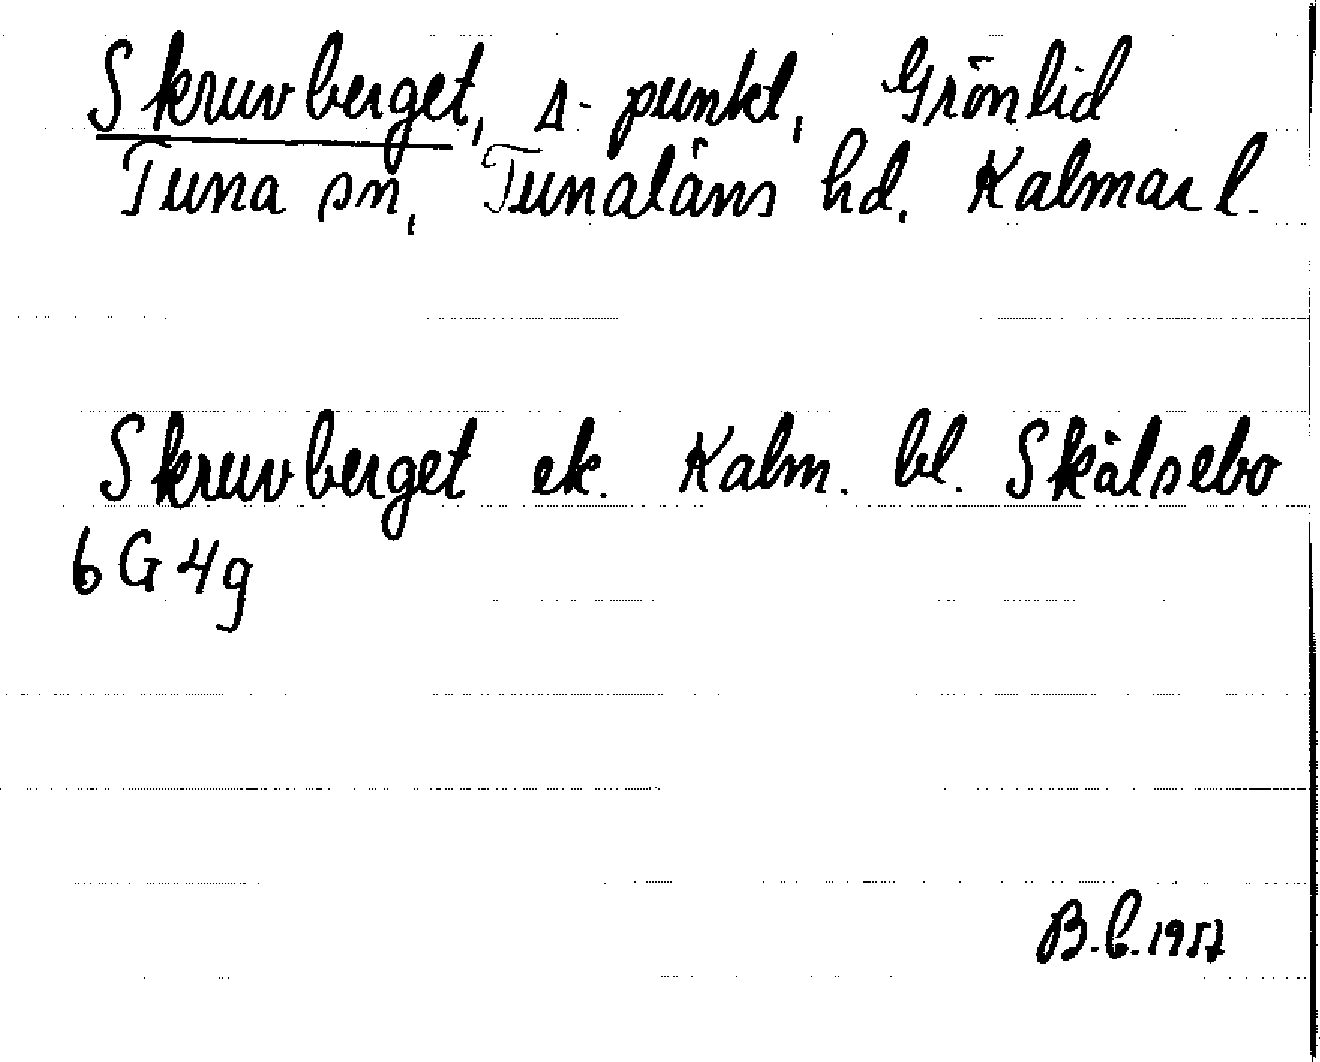 Skruvberget, Δ-punkt, Grönlid
Tuna sn, Tunaläns hd. Kalmar l.
Skruvberget ek. Kalm. bl. Skälsebo
6G4g
B.C. 1957